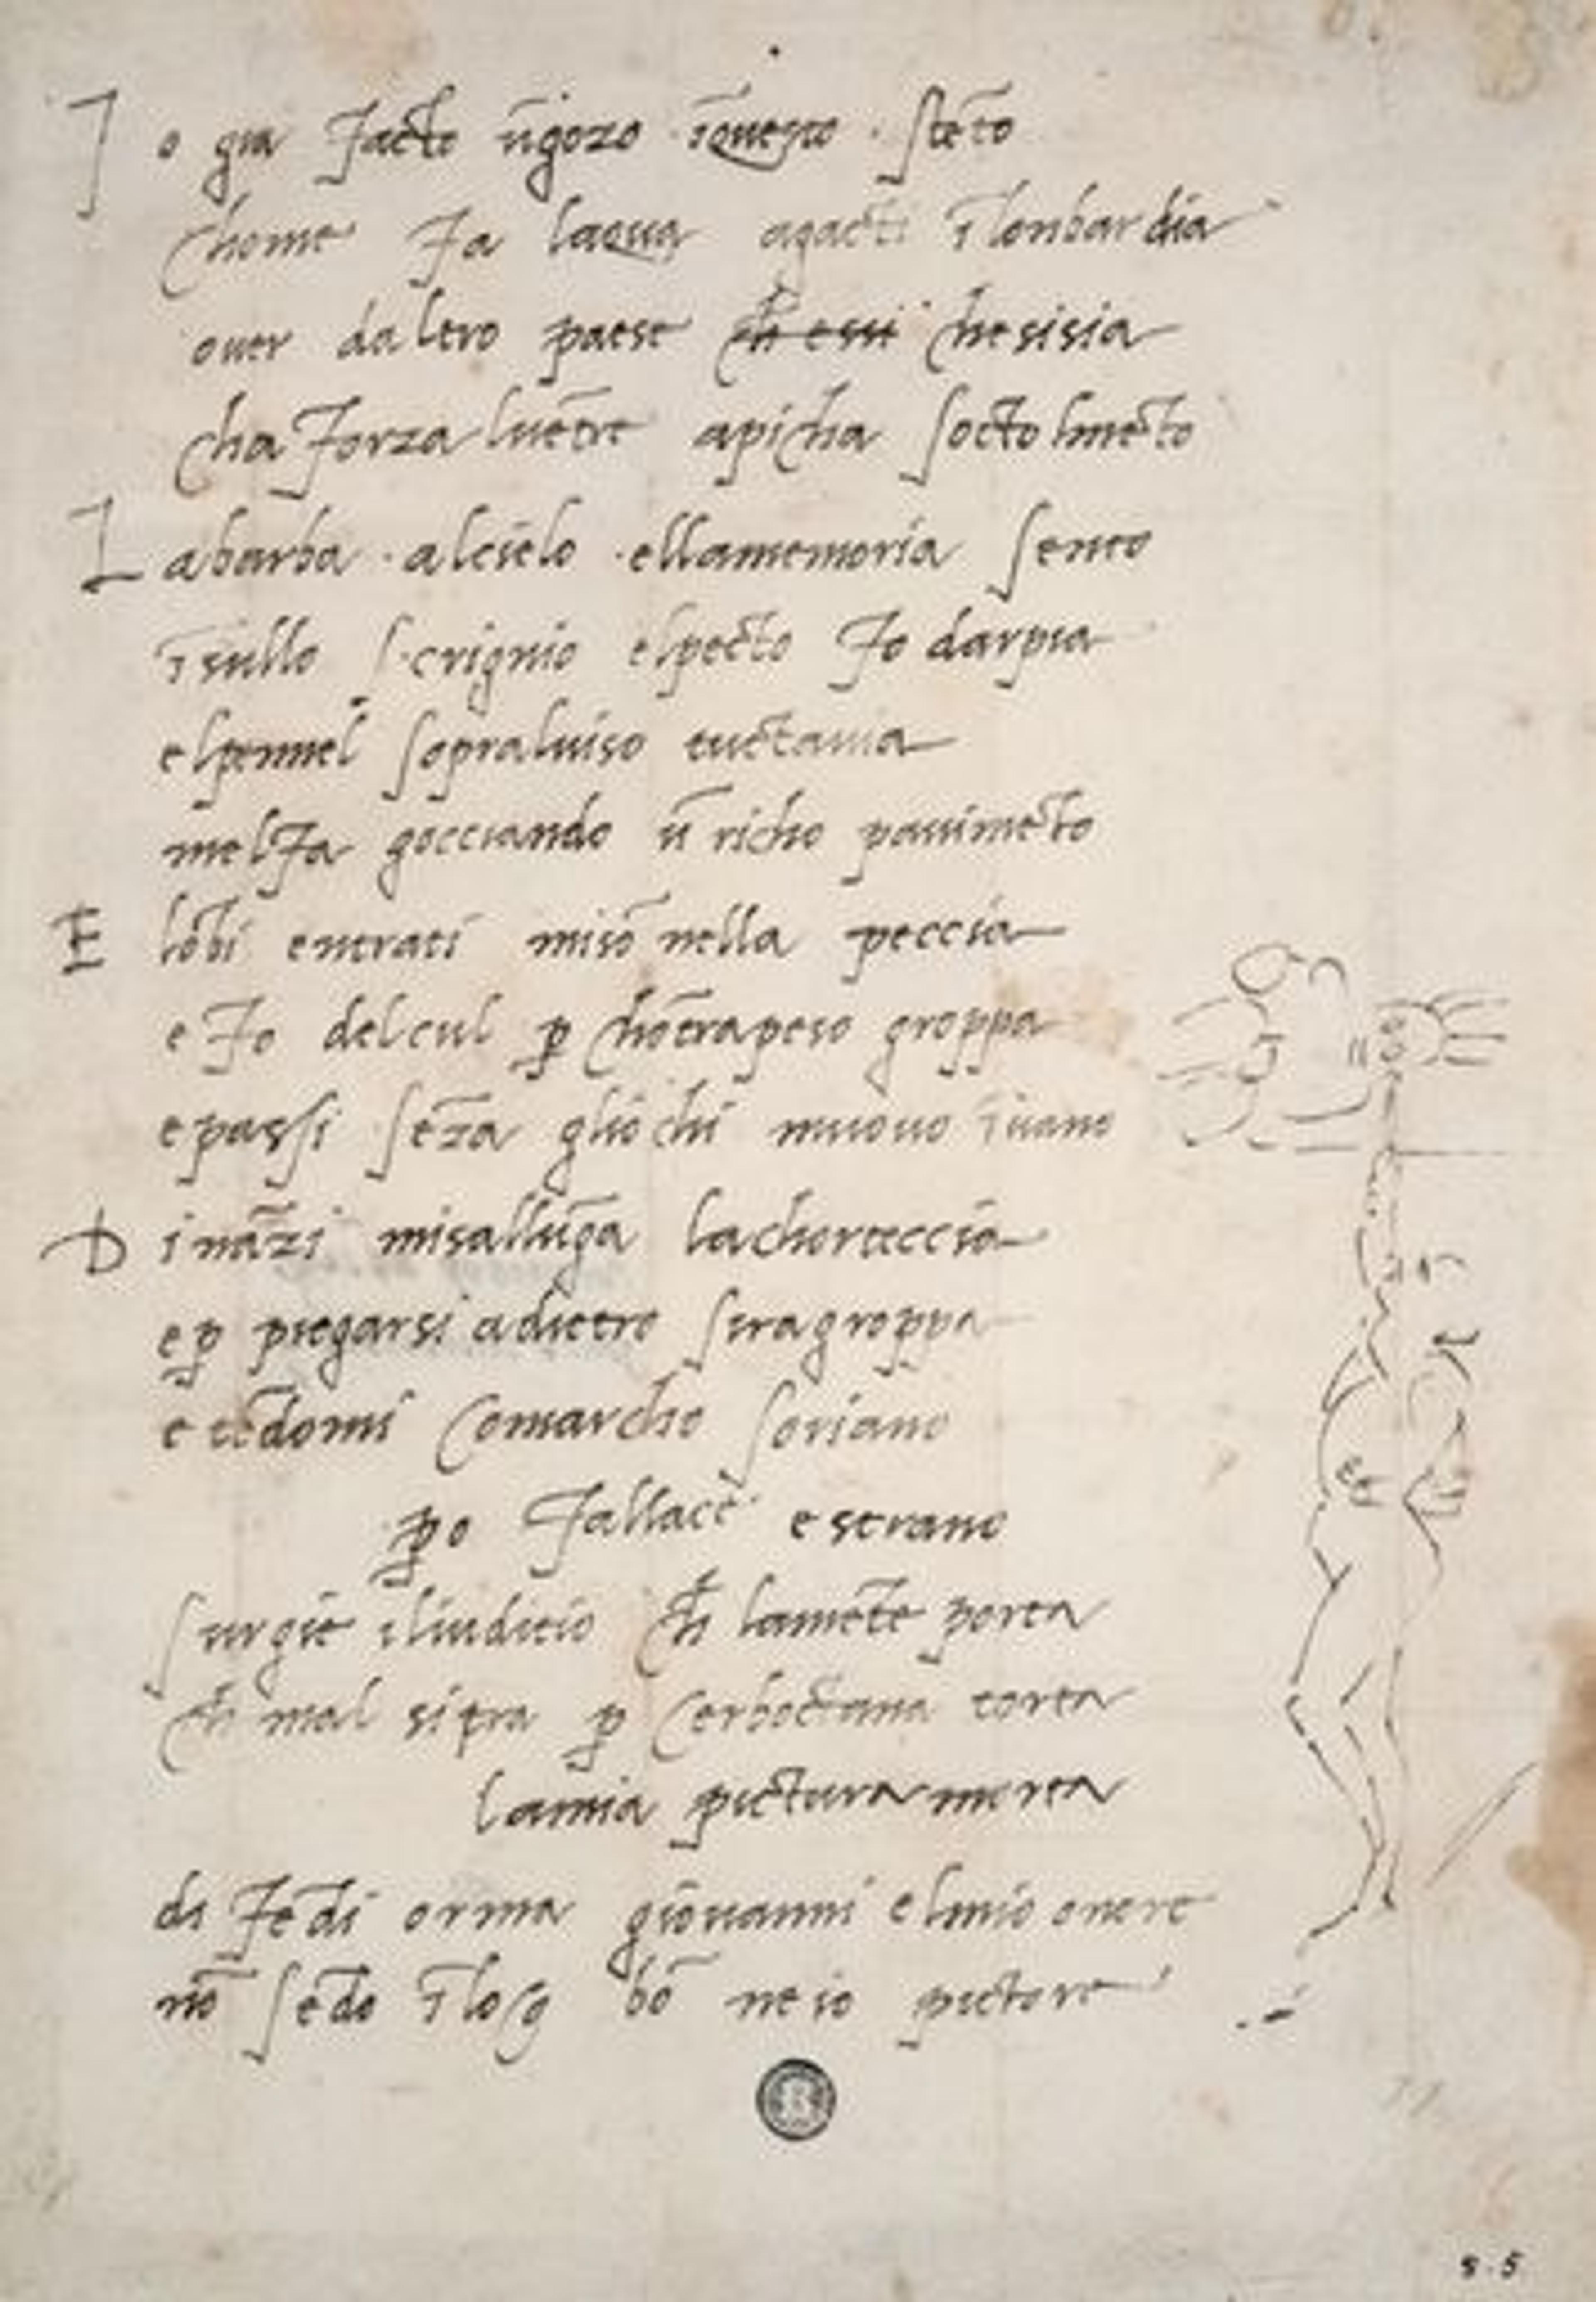 I o gia facto ũgozo ĩquesto stẽto
chome fa laqua agacti ĩ lonbardia
over daltro paese ch̃ essi chesisia
cha forza lvẽtre apicha socto lmẽto
L abarba · alcielo · ellamemoria sento
ĩ sullo scrignio elpecto fo darpia
elpennel sopralviso tuctavia
melfa gocciando ũ richo pavimẽto
E lõbi entrati misõ nella peccia
e fo delcul p̱ chõtrapeso groppa
epassi sẽza gliochi muovo ĩvano
D inãzi misallũga lachorteccia
ep̱ piegarsi adietro siragroppa
e tẽdomi comarcho soriano
p̱o fallace e strano
surgie iliuditio ch̃ lamẽte porta
ch̃ mal sitra p̱ cerboctana torta
lamia pictura morta
di fẽdi orma giovanni elmio onore
nõ sẽdo ĩ log bõ ne io pictore
8·5